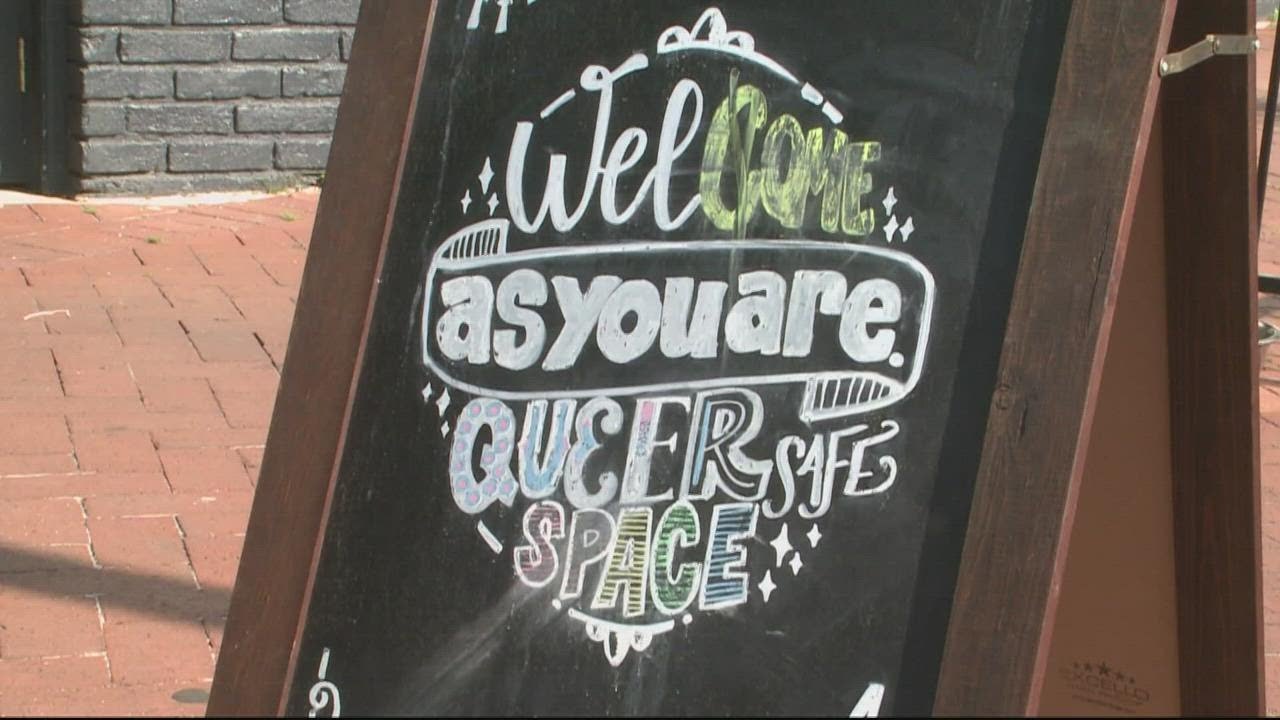 Welcome
as you are.
QUEER SAFE
SPACE
EXCELLO